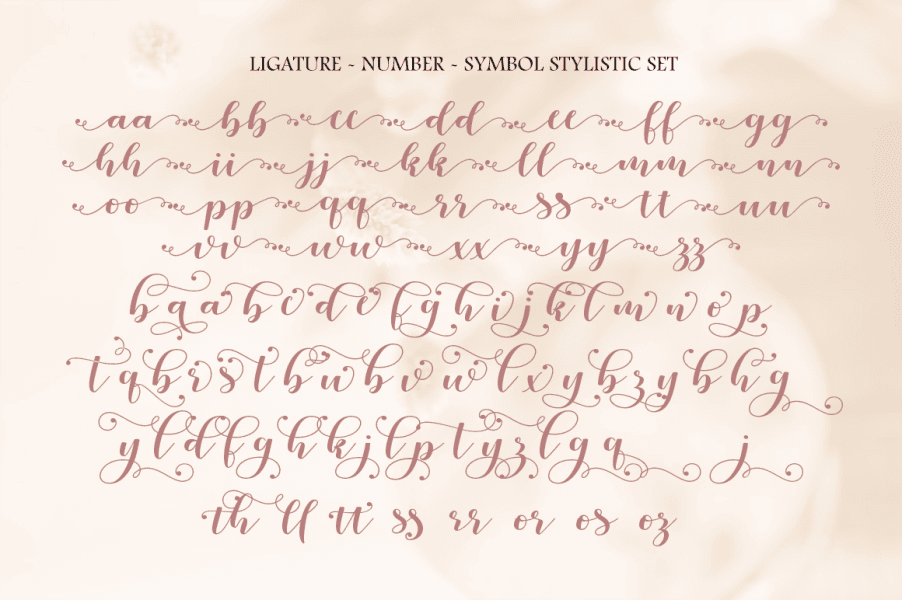 LIGATURE - NUMBER - SYMBOL STYLISTIC SET
aa bb cc dd ee ff gg
hh ii jj kk ll mm nn
oo pp qq rr ss tt uu
vv ww xx yy zz
b q a b c d e f g h i j k l m n o p
t q b r s t b u b v w l x y b z y b h g
y l d f g h k j l p t y z l g q j
th ll tt ss rr or os oz